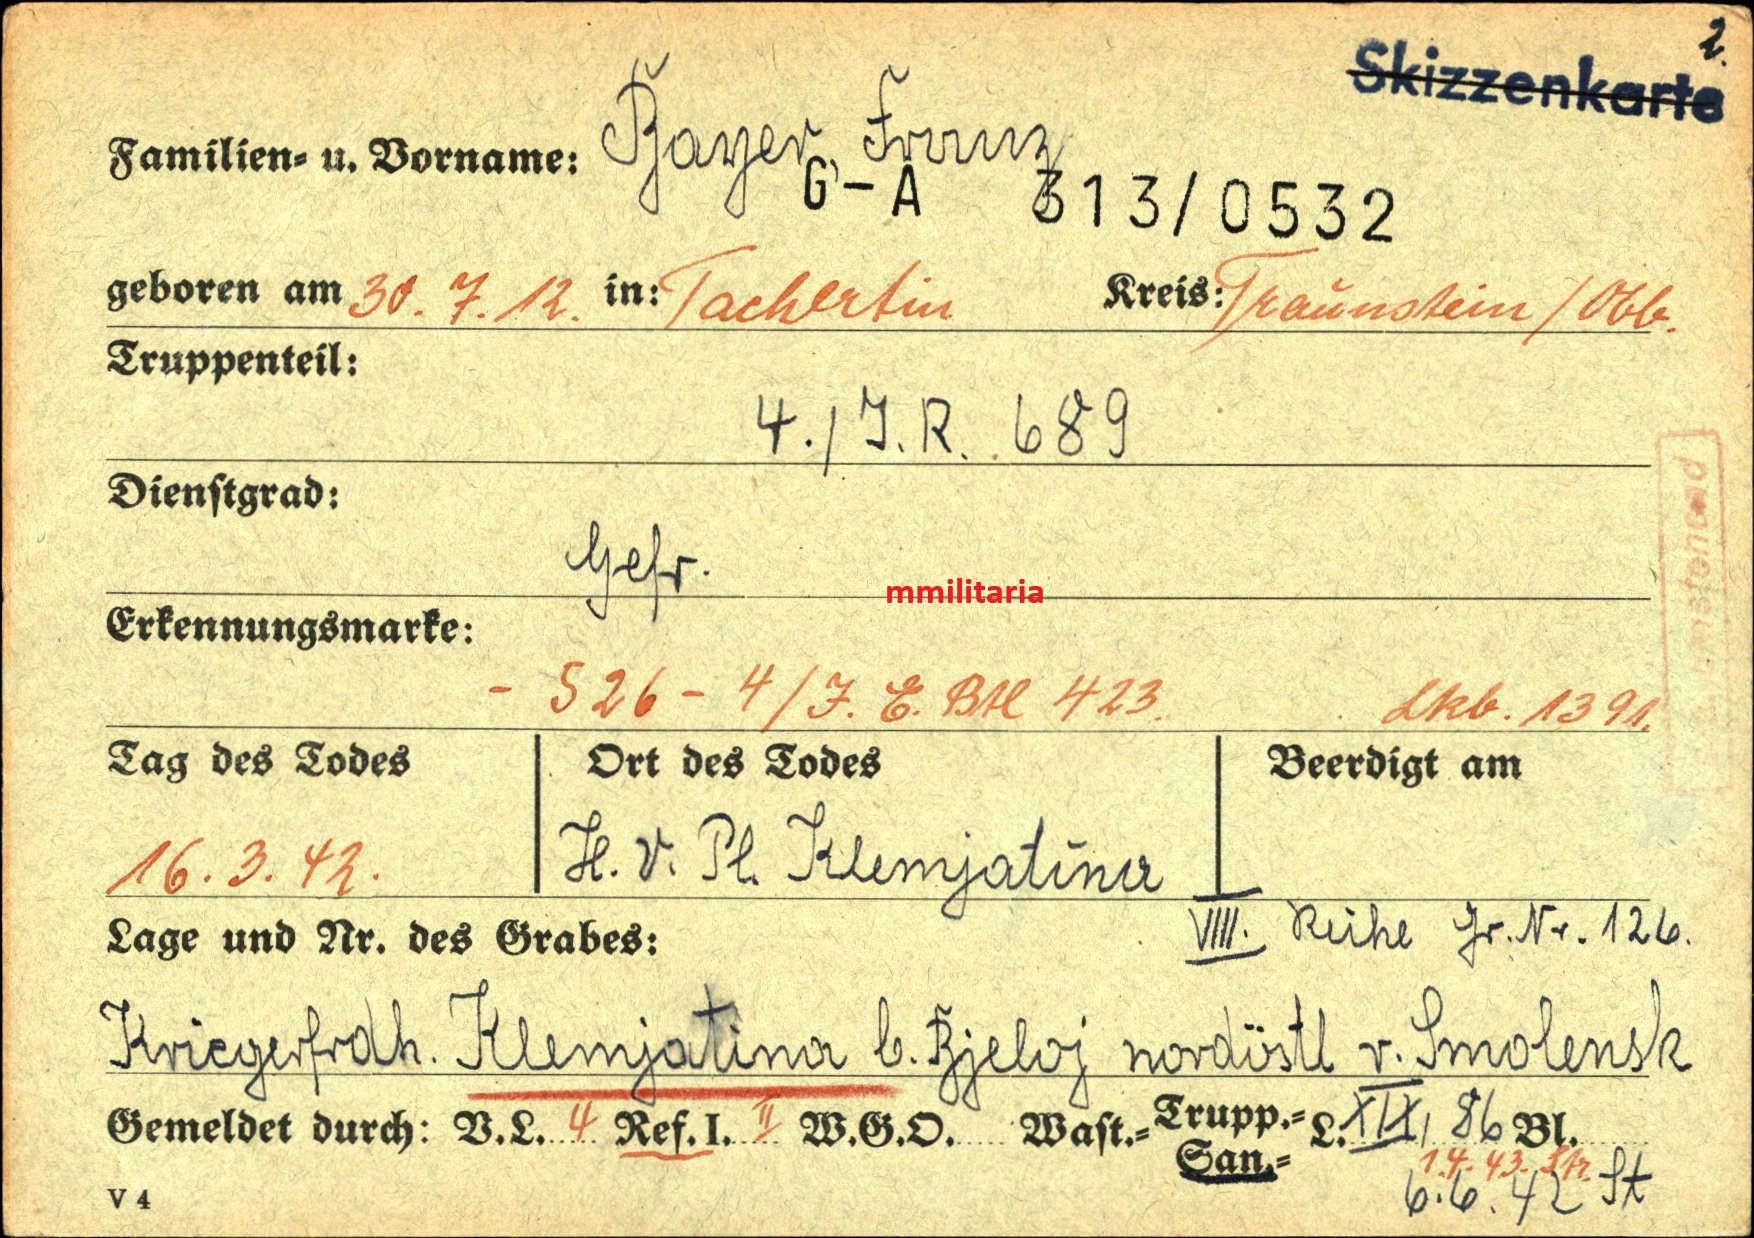 2.
Skizzenkarte
Familien- u. Vorname: Bayer, Franz
G-A 313/0532
geboren am 30. 7. 12. in: Tachertin Kreis: Traunstein / Obb.
Truppenteil:
4./J.R. 689
Dienstgrad:
Gefr.
mmilitaria
Erkennungsmarke:
- 526 - 4/J. E. Btl 423. Lkb. 1391.
Tag des Todes Ort des Todes Beerdigt am
16. 3. 42. H. V. Pl. Klemjatina
Lage und Nr. des Grabes: VIII. Reihe Gr. Nr. 126.
Kriegerfrdh. Klemjatina b. Bjeloj nordöstl v. Smolensk
Gemeldet durch: V.L. 4 Ref. I. II W.G.O. Wast.- Trupp.- San.- L. XIX, 86 Bl.
1.4.43. Str.
6.6.42 St
V 4